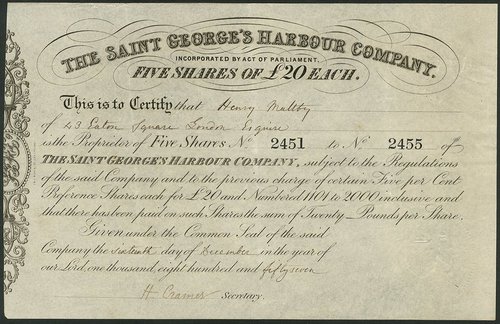 THE SAINT GEORGE'S HARBOUR COMPANY.
INCORPORATED BY ACT OF PARLIAMENT.
FIVE SHARES OF £20 EACH.
This is to Certify that Henry Maltby
of 23 Eaton Square London Esquire
is the Proprietor of Five Shares No. 2451 to No. 2455 of
THE SAINT GEORGE'S HARBOUR COMPANY, subject to the Regulations
of the said Company and to the previous charge of certain Five per Cent
Preference Shares each for £20 and Numbered 1101 to 2000 inclusive and
that there has been paid on such Shares the sum of Twenty Pounds per Share.
Given under the Common Seal of the said
Company the sixteenth day of December in the year of
our Lord, one thousand, eight hundred and fifty seven
H. Cramer Secretary.